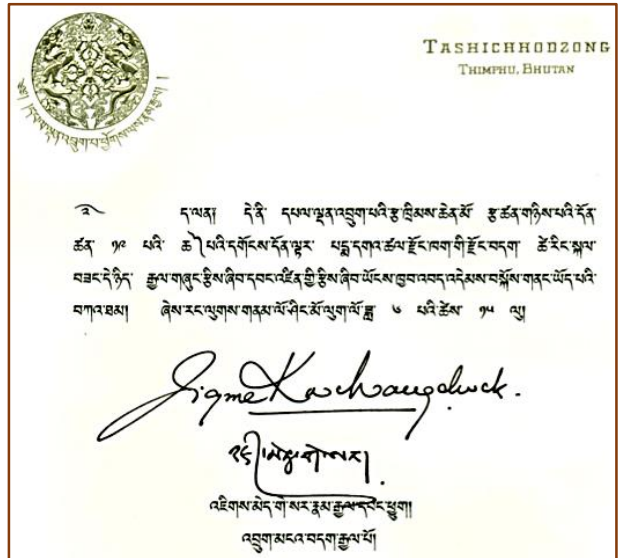 TASHICHHODZONG
THIMPHU, BHUTAN
ད་ལན། དེ་ནི་ དཔལ་ལྡན་འབྲུག་པའི་རྩ་ཁྲིམས་ཆེན་མོ་ རྩ་ཚན་གཉིས་པའི་དོན་
ཚན་ ༡༩ པའི་ པའི་དགོངས་དོན་ལྟར་ པདྨ་དགའ་ཚལ་རྫོང་ཁག་གི་རྫོང་བདག་ ཚེ་རིང་སྐལ་
བཟང་དེ་ཉིད་ རྒྱལ་གཞུང་རྩིས་ཞིབ་དབང་འཛིན་གྱི་རྩིས་ཞིབ་ཡོངས་ཁྱབ་འབད་འདེམས་བསྐོས་གནང་ཡོད་པའི་
བཀའ་ཐམ། ཞེས་རང་ལུགས་གནམ་ལོ་ཤིང་མོ་ལུག་ལོ་ཟླ་ ༦ པའི་ཚེས་ ༡༥ ལུ།
འཇིགས་མེད་གེ་སར་རྣམ་རྒྱལ་དབང་ཕྱུག།
འབྲུག་མངའ་བདག་རྒྱལ་པོ།